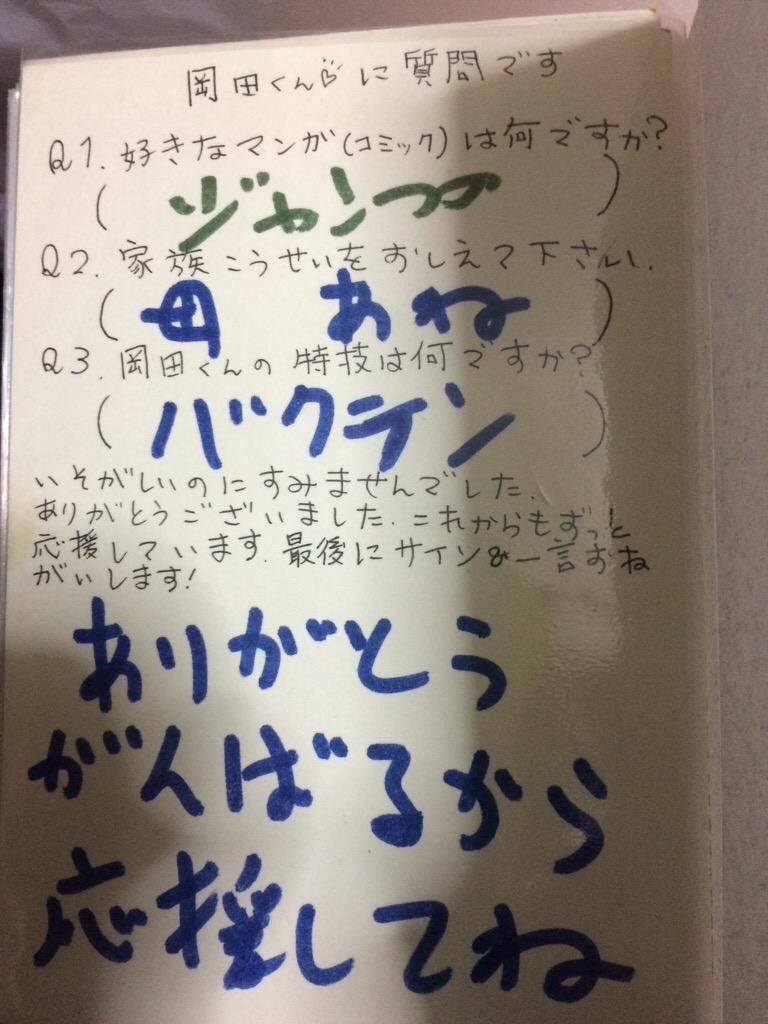 岡田くん♡に質問です
Q1. 好きなマンガ(コミック)は何ですか?
( ジャンプ )
Q2. 家族こうせいをおしえて下さい.
( 母 あね )
Q3. 岡田くんの特技は何ですか?
( バクテン )
いそがしいのにすみませんでした.
ありがとうございました. これからもずっと
応援しています. 最後にサイン&一言おね
がいします!
ありがとう
がんばるから
応援してね